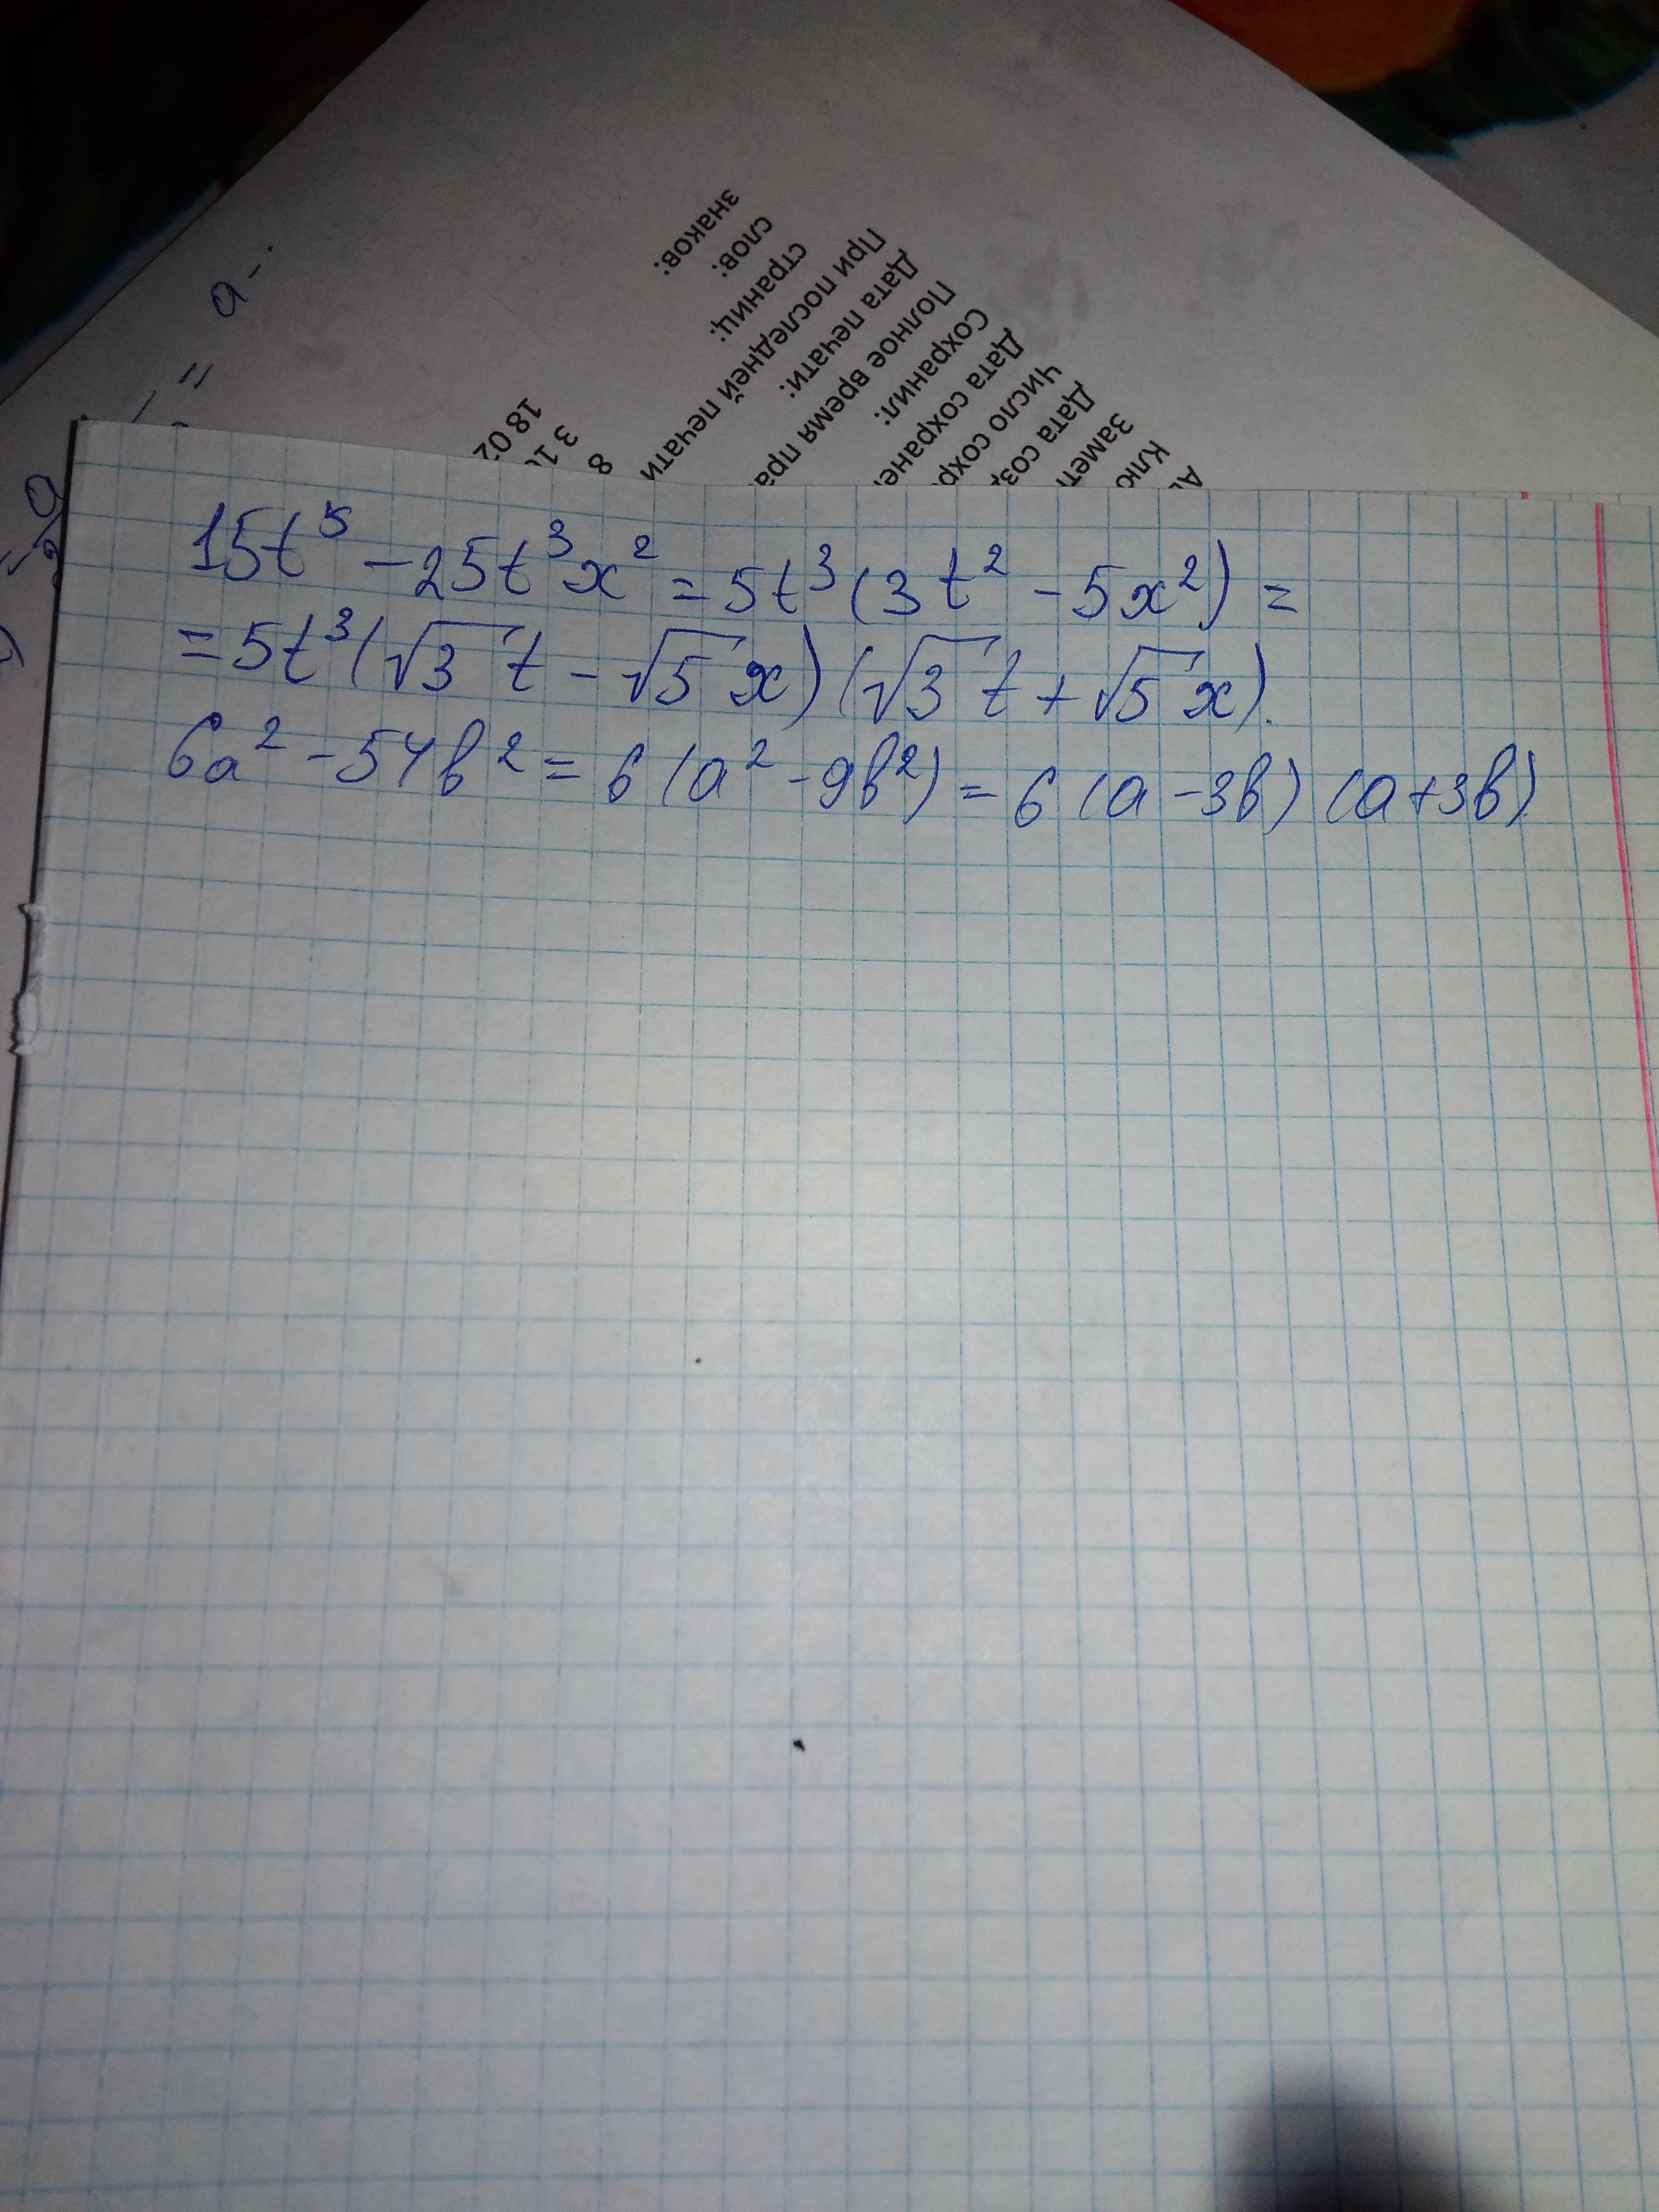 знаков:
слов:
страниц:
При последней печати
Дата печати:
Полное время
Сохранил:
Дата
Число
Дата
8
= a -
15t⁵ - 25t³x² = 5t³(3t² - 5x²) =
= 5t³(√3 t - √5 x)(√3 t + √5 x).
6a² - 54b² = 6(a² - 9b²) = 6(a - 3b)(a + 3b).